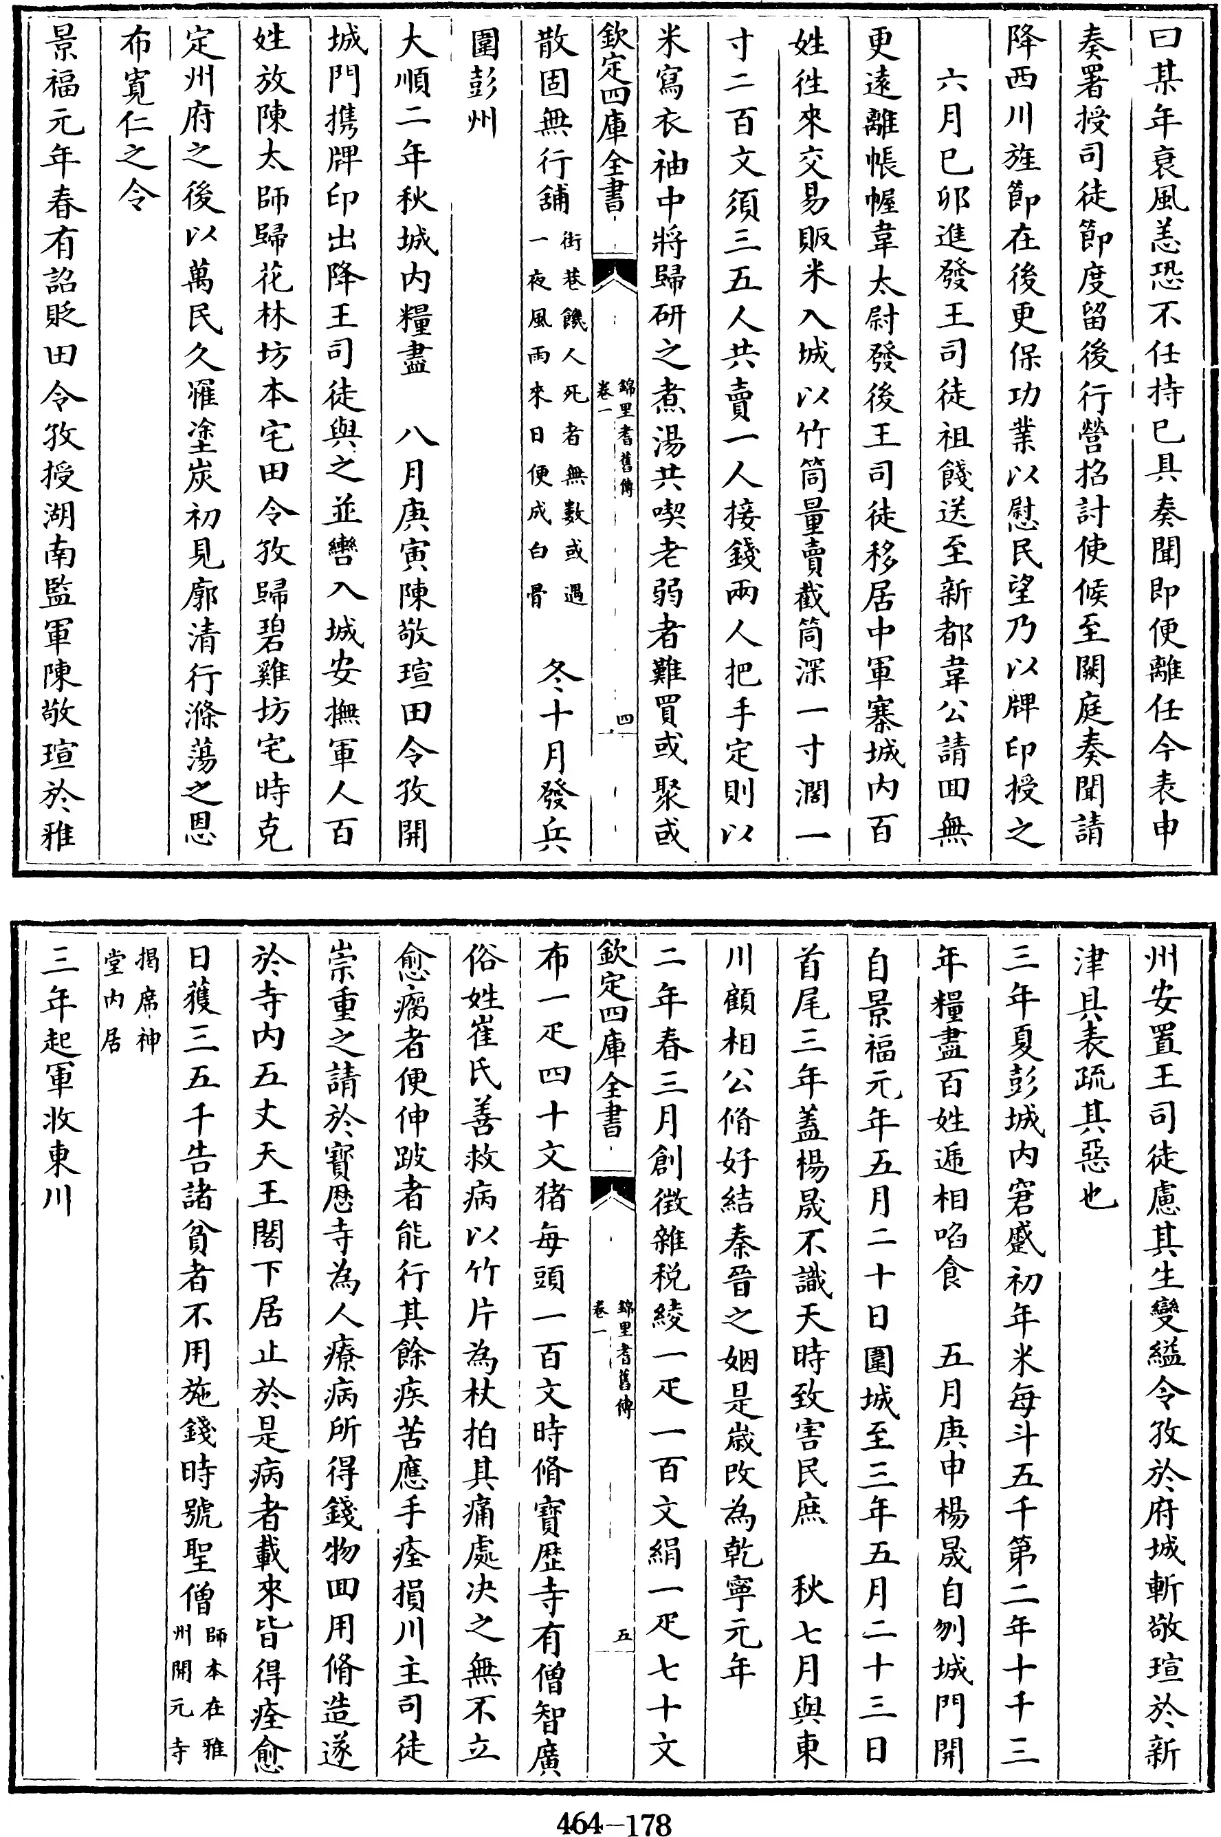 曰某年衰風恙恐不任持已具奏聞即便離任今表申
奏署授司徒節度留後行營招討使候至闕庭奏聞請
降西川旌節在後更保功業以慰民望乃以牌印授之
六月已卯進發王司徒祖餞送至新都韋公請回無
更遠離帳幄韋太尉發後王司徒移居中軍寨城内百
姓徃來交易販米入城以竹筒量賣截筒深一寸濶一
寸二百文須三五人共賣一人接錢兩人把手定則以
米寫衣袖中將歸研之煮湯共喫老弱者難買或聚或
欽定四庫全書
錦里耆舊傳
卷一
四
散固無行舖
街巷饑人死者無數或遇
一夜風雨來日便成白骨
冬十月發兵
圍彭州
大順二年秋城内糧盡 八月庚寅陳敬瑄田令孜開
城門携牌印出降王司徒與之並轡入城安撫軍人百
姓放陳太師歸花林坊本宅田令孜歸碧雞坊宅時克
定州府之後以萬民久罹塗炭初見廓清行滌蕩之恩
布寛仁之令
景福元年春有詔貶田令孜授湖南監軍陳敬瑄於雅
州安置王司徒慮其生變縊令孜於府城斬敬瑄於新
津具表疏其惡也
三年夏彭城内窘蹙初年米每斗五千第二年十千三
年糧盡百姓遞相啗食 五月庚申楊晟自刎城門開
自景福元年五月二十日圍城至三年五月二十三日
首尾三年蓋楊晟不識天時致害民庶 秋七月與東
川顧相公脩好結秦晉之姻是歲改為乾寧元年
二年春三月創徴雜税綾一疋一百文絹一疋七十文
欽定四庫全書
錦里耆舊傳
卷一
五
布一疋四十文猪每頭一百文時脩寶歴寺有僧智廣
俗姓崔氏善救病以竹片為杖拍其痛處決之無不立
愈癘者便伸跛者能行其餘疾苦應手痊損川主司徒
崇重之請於寳歴寺為人療病所得錢物回用脩造遂
於寺内五丈天王閣下居止於是病者載來皆得痊愈
日獲三五千告諸貧者不用施錢時號聖僧
師本在雅
州開元寺
揭席神
堂内居
三年起軍收東川
464-178